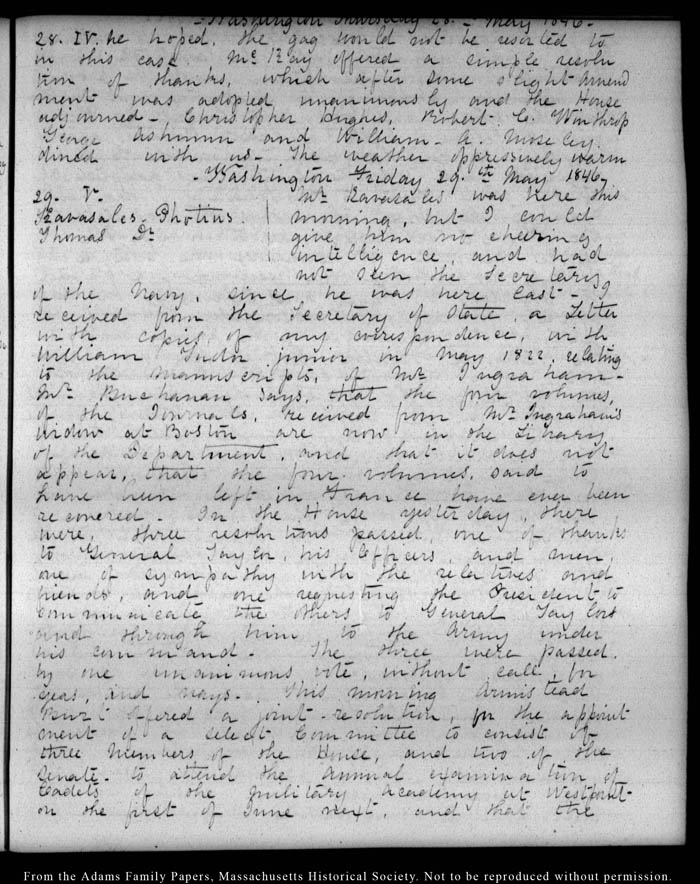 - Washington Thursday 28. - May 1846 -
28. IV. he hoped, the gag would not be resorted to
in this case. Mc.Kay offered a simple resolu
tion of thanks, which after some slight amend
ment was adopted unanimously and the House
adjourned -, Christopher Hughes, Robert. C. Winthrop
George Ashmun and William. A. Moseley.
dined with us - The weather oppressively warm
- Washington Friday 29.th May 1846 -
29. V.
Kavasales - Photius.
Thomas Dr
Mr. Kavasales was here this
morning, but I could
give him no cheering
intelligence, and had
not seen the Secretary
of the Navy, since he was here last -
received from the Secretary of State, a Letter
with copies, of my correspondence, with
William Tudor junior in May 1822, relating
to the manuscripts, of Mr. Ingraham -
Mr. Buchanan says, that the four volumes,
of the Journals, received from Mr. Ingraham's
widow at Boston are now in the Library
of the Department, and that it does not
appear, that the four volumes, said to
have been left in France have ever been
recovered - In the House yesterday, there
were, three resolutions passed, one of thanks
to General Taylor, his Officers, and men,
one of sympathy with the relatives and
friends, and one requesting the President to
Communicate the others to General Taylor
and through him to the Army under
his command - The three were passed.
by one unanimous vote, without call, for
yeas, and nays -. This morning Armistead
Burt offered a joint-resolution, for the appoint
ment of a select Committee to consist of
three Members of the House, and two of the
Senate - to attend the Annual examination of
Cadets of the military Academy at Westpoint
on the first of June next, and that the
From the Adams Family Papers, Massachusetts Historical Society. Not to be reproduced without permission.